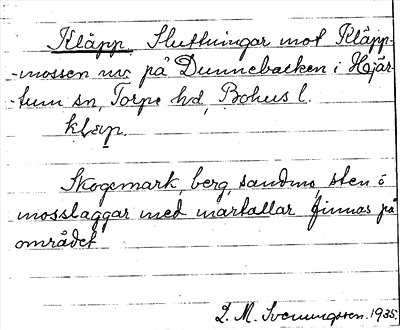 Kläpp. Sluttningar mot Kläpp-
-mossen nv på Dunnebacken i Hjär-
-tum sn, Torpe hd, Bohus l.
klɛp.
Skogsmark, berg, sandmo, sten o
mosslaggar med martallar finnas på
området
L. M. Svenungsson. 1935.